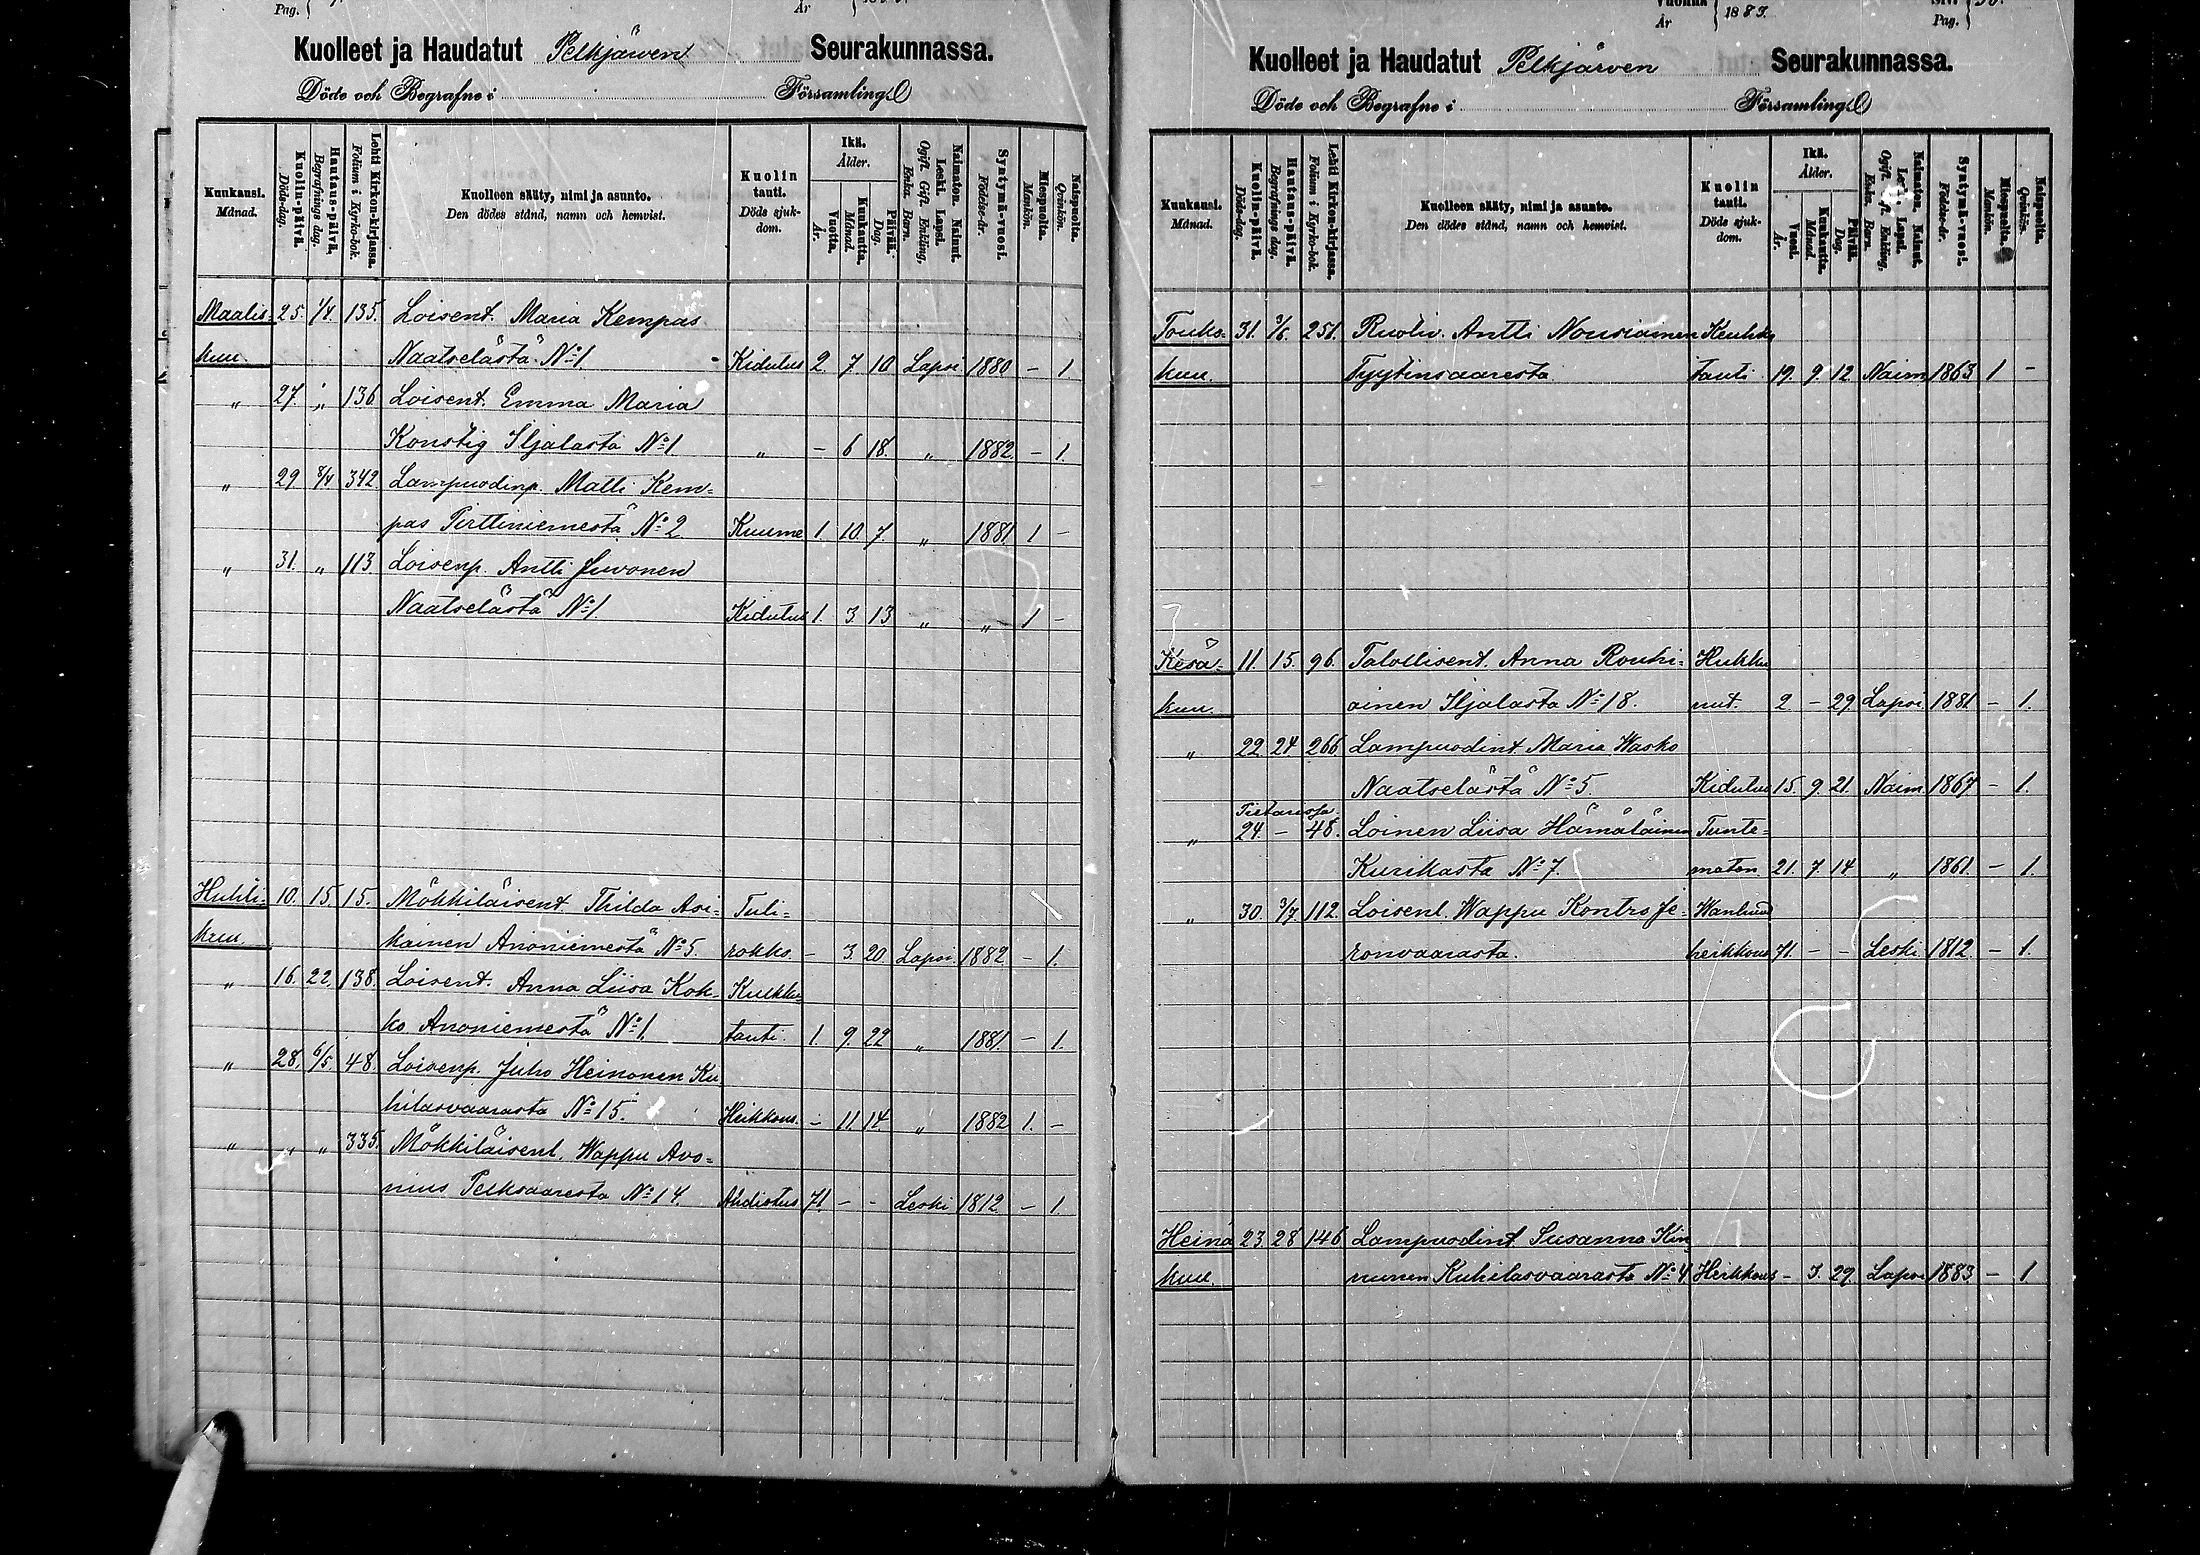 Pag. År
Kuolleet ja Haudatut Pelkjärven Seurakunnassa.
Döde och Begrafne i Församling.
Kuukausi. Månad. Kuolin-päivä. Döds-dag. Hautaus-päivä. Begrafnings dag. Lehti Kirkon-kirjassa. Folium i Kyrko-bok. Kuolleen sääty, nimi ja asunto. Den dödes stånd, namn och hemvist. Kuolin tauti. Döds sjukdom. Ikä. Ålder. Vuotta. År. Kuukautta. Månad. Päivää. Dag. Naimaton. Nainut. Leski. Lapsi. Ogift. Gift. Enkling, Enka. Barn. Syntymä-vuosi. Födelse-år. Miespuolta. Mankön. Naispuolta. Qvinkön.
Maalis- 25. 1/4. 135. Loisent. Maria Kempas
kuu. Naatselästä No 1 Kidutus 2 7 10 Lapsi 1880 - 1
" 27. " 136 Loisent. Emma Maria
Konstig Iljalasta No 1 " - 6 18. " 1882. - 1.
" 29. 8/4 342 Lampuodinp. Matti Kem-
pas Pirttiniemestä No 2 Kuume 1. 10. 7. " 1881 1 -
" 31. " 113 Loisenp. Antti Juvonen
Naatselästä No 1. Kidutus 1. 3. 13 " " 1 -
Huhti- 10. 15. 15. Mökkiläisent. Thilda Asi- Tuli-
kuu. kainen Anoniemestä No 5. rokko. - 3. 20. Lapsi. 1882 - 1.
" 16. 22. 138. Loisent. Anna Liisa Kok- Kurkku
ko Anoniemestä No 1 tauti. 1. 9. 22 " 1881. - 1.
" 28. 6/5 48. Loisenp. Juho Heinonen Ku
hilasvaarasta No 15. Heikkous. - 11. 14. " 1882 1. -
" " " 335. Mökkiläisenl. Wappu Avo-
nius Pelksaaresta No 14. Ahdistus 71. - - Leski 1812. - 1.
Vuonna År 1883. Siv. Pag.
Kuolleet ja Haudatut Pelkjärven Seurakunnassa.
Döde och Begrafne i Församling.
Kuukausi. Månad. Kuolin-päivä. Döds-dag. Hautaus-päivä. Begrafnings dag. Lehti Kirkon-kirjassa. Folium i Kyrko-bok. Kuolleen sääty, nimi ja asunto. Den dödes stånd, namn och hemvist. Kuolin tauti. Döds sjukdom. Ikä. Ålder. Vuosi. År. Kuukautta. Månad. Päivää. Dag. Naimaton. Nainut. Leski. Lapsi. Ogift. Gift. Enkling, Enka. Barn. Syntymä-vuosi. Födelse-år. Miespuolta. Mankön. Naispuolta. Qvinkön.
Touko- 31. 3/6. 251. Ruotiv. Antti Nousiainen Keuhko
kuu. Tyytinsaaresta tauti 19. 9. 12. Naim 1863 1 -
Kesä- 11. 15. 96. Talollisent. Anna Rouhi- Hukku
ainen Iljalasta No 18. nut. 2 - 29. Lapsi 1881 - 1.
" 22. 24. 266 Lampuodint. Maria Wasko
Naatselästä No 5 Kidutus 15. 9. 21. Naim. 1867 - 1.
Pietarissa
" 24 - 48. Loinen Liisa Hämäläinen Tunte-
Kurikasta No 7. maton 21. 7. 14 " 1861. - 1.
" 30. 3/7 112. Loisenl. Wappu Kontro Je- Wanhuud
ronvaarasta. heikkous 71. - - Leski. 1812. - 1.
Heinä 23. 28 146 Lampuodint. Susanna Kin
kuu. nunen Kuhilasvaarasta No 4 Heikkous - 3. 29. Lapsi 1883 - 1